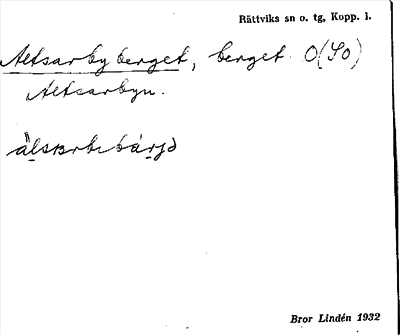 Rättviks sn o. tg, Kopp. l.
Altsarbyberget, berget O(SO)
Altsarbyn.
Bror Lindén 1932